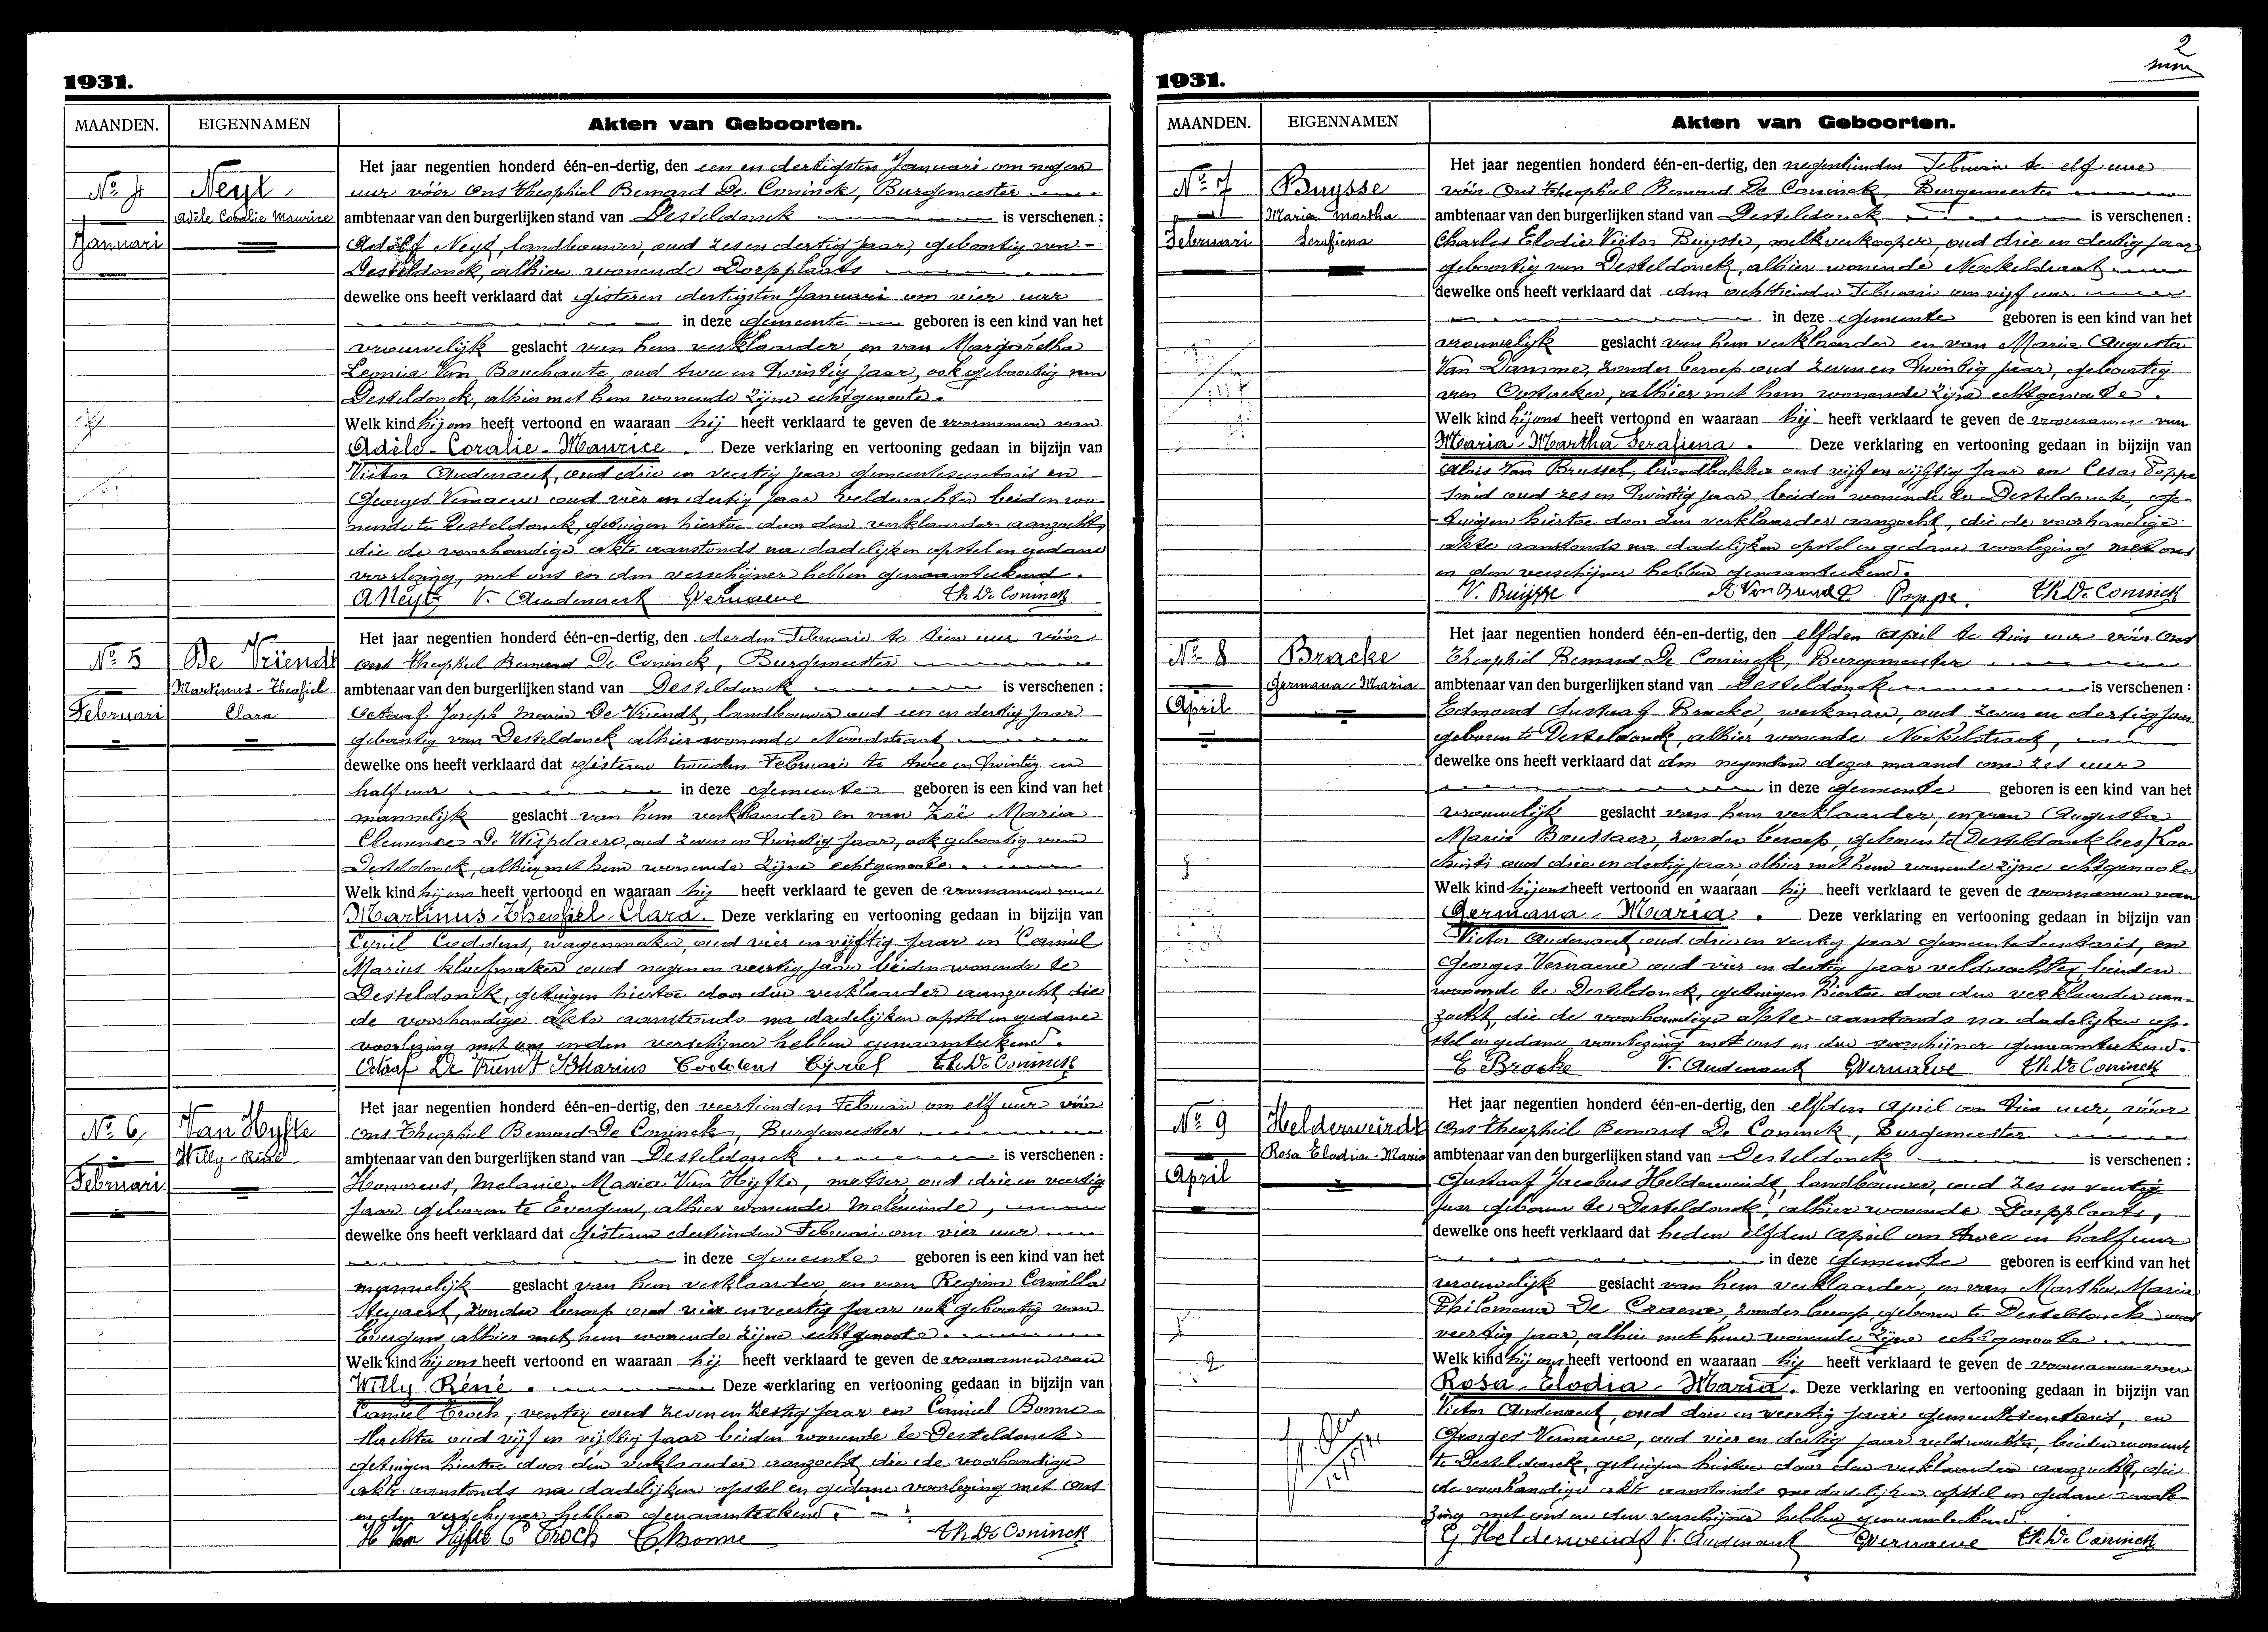 1931.
MAANDEN. EIGENNAMEN Akten van Geboorten.
Het jaar negentien honderd één-en-dertig, den een en dertigsten Januari om negen
No 4 Neyt, uur vóór ons Theophiel Bernard De Coninck, Burgemeester
Adèle Coralie Maurice ambtenaar van den burgerlijken stand van Desteldonck is verschenen :
Januari Adolf Neyt, landbouwer, oud zes en dertig jaar, geboortig van
Desteldonck, alhier wonende Dorpplaats
dewelke ons heeft verklaard dat gisteren dertigsten Januari om vier uur
in deze gemeente geboren is een kind van het
vrouwelijk geslacht van hem verklaarder, en van Margaretha
Leonia Van Bouchaute, oud twee en twintig jaar, ook geboortig van
Desteldonck, alhier met hem wonende zijne echtgenoote.
Welk kind hij ons heeft vertoond en waaraan hij heeft verklaard te geven de voornamen van
Adèle-Coralie-Maurice Deze verklaring en vertooning gedaan in bijzijn van
Victor Audenaert, oud drie en veertig jaar gemeentesecretaris en
Georges Vernaeve oud vier en dertig jaar veldwachter beiden wo-
nende te Desteldonck, getuigen hiertoe door den verklaarder aanzocht,
die de voorhandige akte aanstonds na dadelijken opstel en gedane
voorlezing, met ons en den verschijner hebben genaamteekend.
A Neyt V. Audenaert GVernaeve Th. De Coninck
Het jaar negentien honderd één-en-dertig, den derden Februari te tien uur vóór
No 5 De Vriendt ons Theophiel Bernard De Coninck, Burgemeester
Martinus-Theofiel ambtenaar van den burgerlijken stand van Desteldonck is verschenen :
Februari Clara Octaaf Joseph Maria De Vriendt, landbouwer oud een en dertig jaar
geboortig van Desteldonck alhier wonende Noordstraat
dewelke ons heeft verklaard dat gisteren tweeden Februari te twee en twintig en
half uur in deze gemeente geboren is een kind van het
mannelijk geslacht van hem verklaarder en van Zoë Maria
Clemence De Wispelaere, oud zeven en twintig jaar, ook geboortig van
Desteldonck, alhier met hem wonende zijne echtgenoote.
Welk kind hij ons heeft vertoond en waaraan hij heeft verklaard te geven de voornamen van
Martinus-Theofiel-Clara. Deze verklaring en vertooning gedaan in bijzijn van
Cyriel Coddens, wagenmaker, oud vier en vijftig jaar en Camiel
Marius kloefmaker oud negen en veertig jaar beiden wonende te
Desteldonck, getuigen hiertoe door den verklaarder aanzocht die
de voorhandige akte aanstonds na dadelijken opstel en gedane
voorlezing met ons en den verschijner hebben genaamteekend.
Octaaf De Vriendt Marius Coddens Cyriel Th. De Coninck
Het jaar negentien honderd één-en-dertig, den veertienden Februari om elf uur vóór
No 6 Van Hyfte ons Theophiel Bernard De Coninck, Burgemeester
Willy-Réné ambtenaar van den burgerlijken stand van Desteldonck is verschenen :
Februari Honoreus, Melanie, Maria Van Hyfte, metser, oud drie en veertig
jaar geboren te Evergem, alhier wonende Moleneinde,
dewelke ons heeft verklaard dat gisteren dertienden Februari om vier uur
in deze gemeente geboren is een kind van het
mannelijk geslacht van hem verklaarder, en van Regina Camilla
Steyaert, zonder beroep oud vier en veertig jaar ook geboortig van
Evergem alhier met hem wonende zijne echtgenoote.
Welk kind hij ons heeft vertoond en waaraan hij heeft verklaard te geven de voornamen van
Willy Réné. Deze verklaring en vertooning gedaan in bijzijn van
Camiel Troch, oud zeven en zestig jaar en Camiel Bonne
slachter oud vijf en vijftig jaar beiden wonende te Desteldonck
getuigen hiertoe door den verklaarder aanzocht die de voorhandige
akte aanstonds na dadelijken opstel en gedane voorlezing met ons
en den verschijner hebben genaamteekend.
H Van Hyfte C Troch C. Bonne Th. De Coninck
2
1931.
MAANDEN. EIGENNAMEN Akten van Geboorten.
Het jaar negentien honderd één-en-dertig, den negentienden Februari te elf uur
No 7 Buysse vóór ons Theophiel Bernard De Coninck, Burgemeester
Maria Martha ambtenaar van den burgerlijken stand van Desteldonck is verschenen :
Februari Serafiena Charles Elodie Victor Buysse, melkverkooper, oud drie en dertig jaar
geboortig van Desteldonck, alhier wonende Neckelstraat
dewelke ons heeft verklaard dat den achttienden Februari om vijf uur
in deze gemeente geboren is een kind van het
vrouwelijk geslacht van hem verklaarder en van Maria Augusta
Van Damme, zonder beroep oud zeven en twintig jaar, geboortig
van Oostacker, alhier met hem wonende zijne echtgenoote.
Welk kind hij ons heeft vertoond en waaraan hij heeft verklaard te geven de voornamen van
Maria-Martha Serafiena. Deze verklaring en vertooning gedaan in bijzijn van
Alois Van Brussel, broodbakker oud vijf en vijftig jaar en Cesar Poppe
smid oud zes en twintig jaar, beiden wonende te Desteldonck, ge-
tuigen hiertoe door den verklaarder aanzocht, die de voorhandige
akte aanstonds na dadelijken opstel en gedane voorlezing met ons
en den verschijner hebben genaamteekend.
V. Buijsse A Van Brussel Poppe. Th. De Coninck
Het jaar negentien honderd één-en-dertig, den elfden April te tien uur vóór ons
No 8 Bracke Theophiel Bernard De Coninck, Burgemeester
Germana-Maria ambtenaar van den burgerlijken stand van Desteldonck is verschenen :
April Edmond Gustaaf Bracke, werkman, oud zeven en dertig jaar
geboren te Desteldonck, alhier wonende Neckelstraat,
dewelke ons heeft verklaard dat den negenden dezer maand om zes uur
in deze gemeente geboren is een kind van het
vrouwelijk geslacht van hem verklaarder, en van Augusta
Maria Boussaer, zonder beroep, geboren te Desteldonck lees Loo-
christi oud drie en dertig jaar alhier met hem wonende zijne echtgenoote
Welk kind hij ons heeft vertoond en waaraan hij heeft verklaard te geven de voornamen van
Germana-Maria. Deze verklaring en vertooning gedaan in bijzijn van
Victor Audenaert oud drie en veertig jaar gemeentesecretaris, en
Georges Vernaeve oud vier en dertig jaar veldwachter, beiden
wonende te Desteldonck, getuigen hiertoe door den verklaarder aan-
zocht, die de voorhandige akte aanstonds na dadelijken op-
stel en gedane voorlezing met ons en den verschijner genaamteekend.
E Bracke V. Audenaert GVernaeve Th. De Coninck
Het jaar negentien honderd één-en-dertig, den elfden April om tien uur, vóór
No 9 Helderweirdt ons Theophiel Bernard De Coninck, Burgemeester
Rosa Elodia-Maria ambtenaar van den burgerlijken stand van Desteldonck is verschenen :
April Gustaaf Jacobus Helderweirdt, landbouwer, oud zes en veertig
jaar geboren te Desteldonck, alhier wonende Dorpplaats,
dewelke ons heeft verklaard dat heden elfden April om twee en half uur
in deze gemeente geboren is een kind van het
vrouwelijk geslacht van hem verklaarder, en van Martha, Maria
Philomena De Craene, zonder beroep, geboren te Desteldonck oud
veertig jaar, alhier met hem wonende zijne echtgenoote.
Welk kind hij ons heeft vertoond en waaraan hij heeft verklaard te geven de voornamen van
Rosa-Elodia-Maria. Deze verklaring en vertooning gedaan in bijzijn van
Victor Audenaert, oud drie en veertig jaar gemeentesecretaris, en
Georges Vernaeve, oud vier en dertig jaar veldwachter, beiden wonende
te Desteldonck, getuigen hiertoe door den verklaarder aanzocht, die
de voorhandige akte aanstonds na dadelijken opstel en gedane voorle-
zing met ons en den verschijner hebben genaamteekend.
G. Helderweirdt V. Audenaert GVernaeve Th. De Coninck